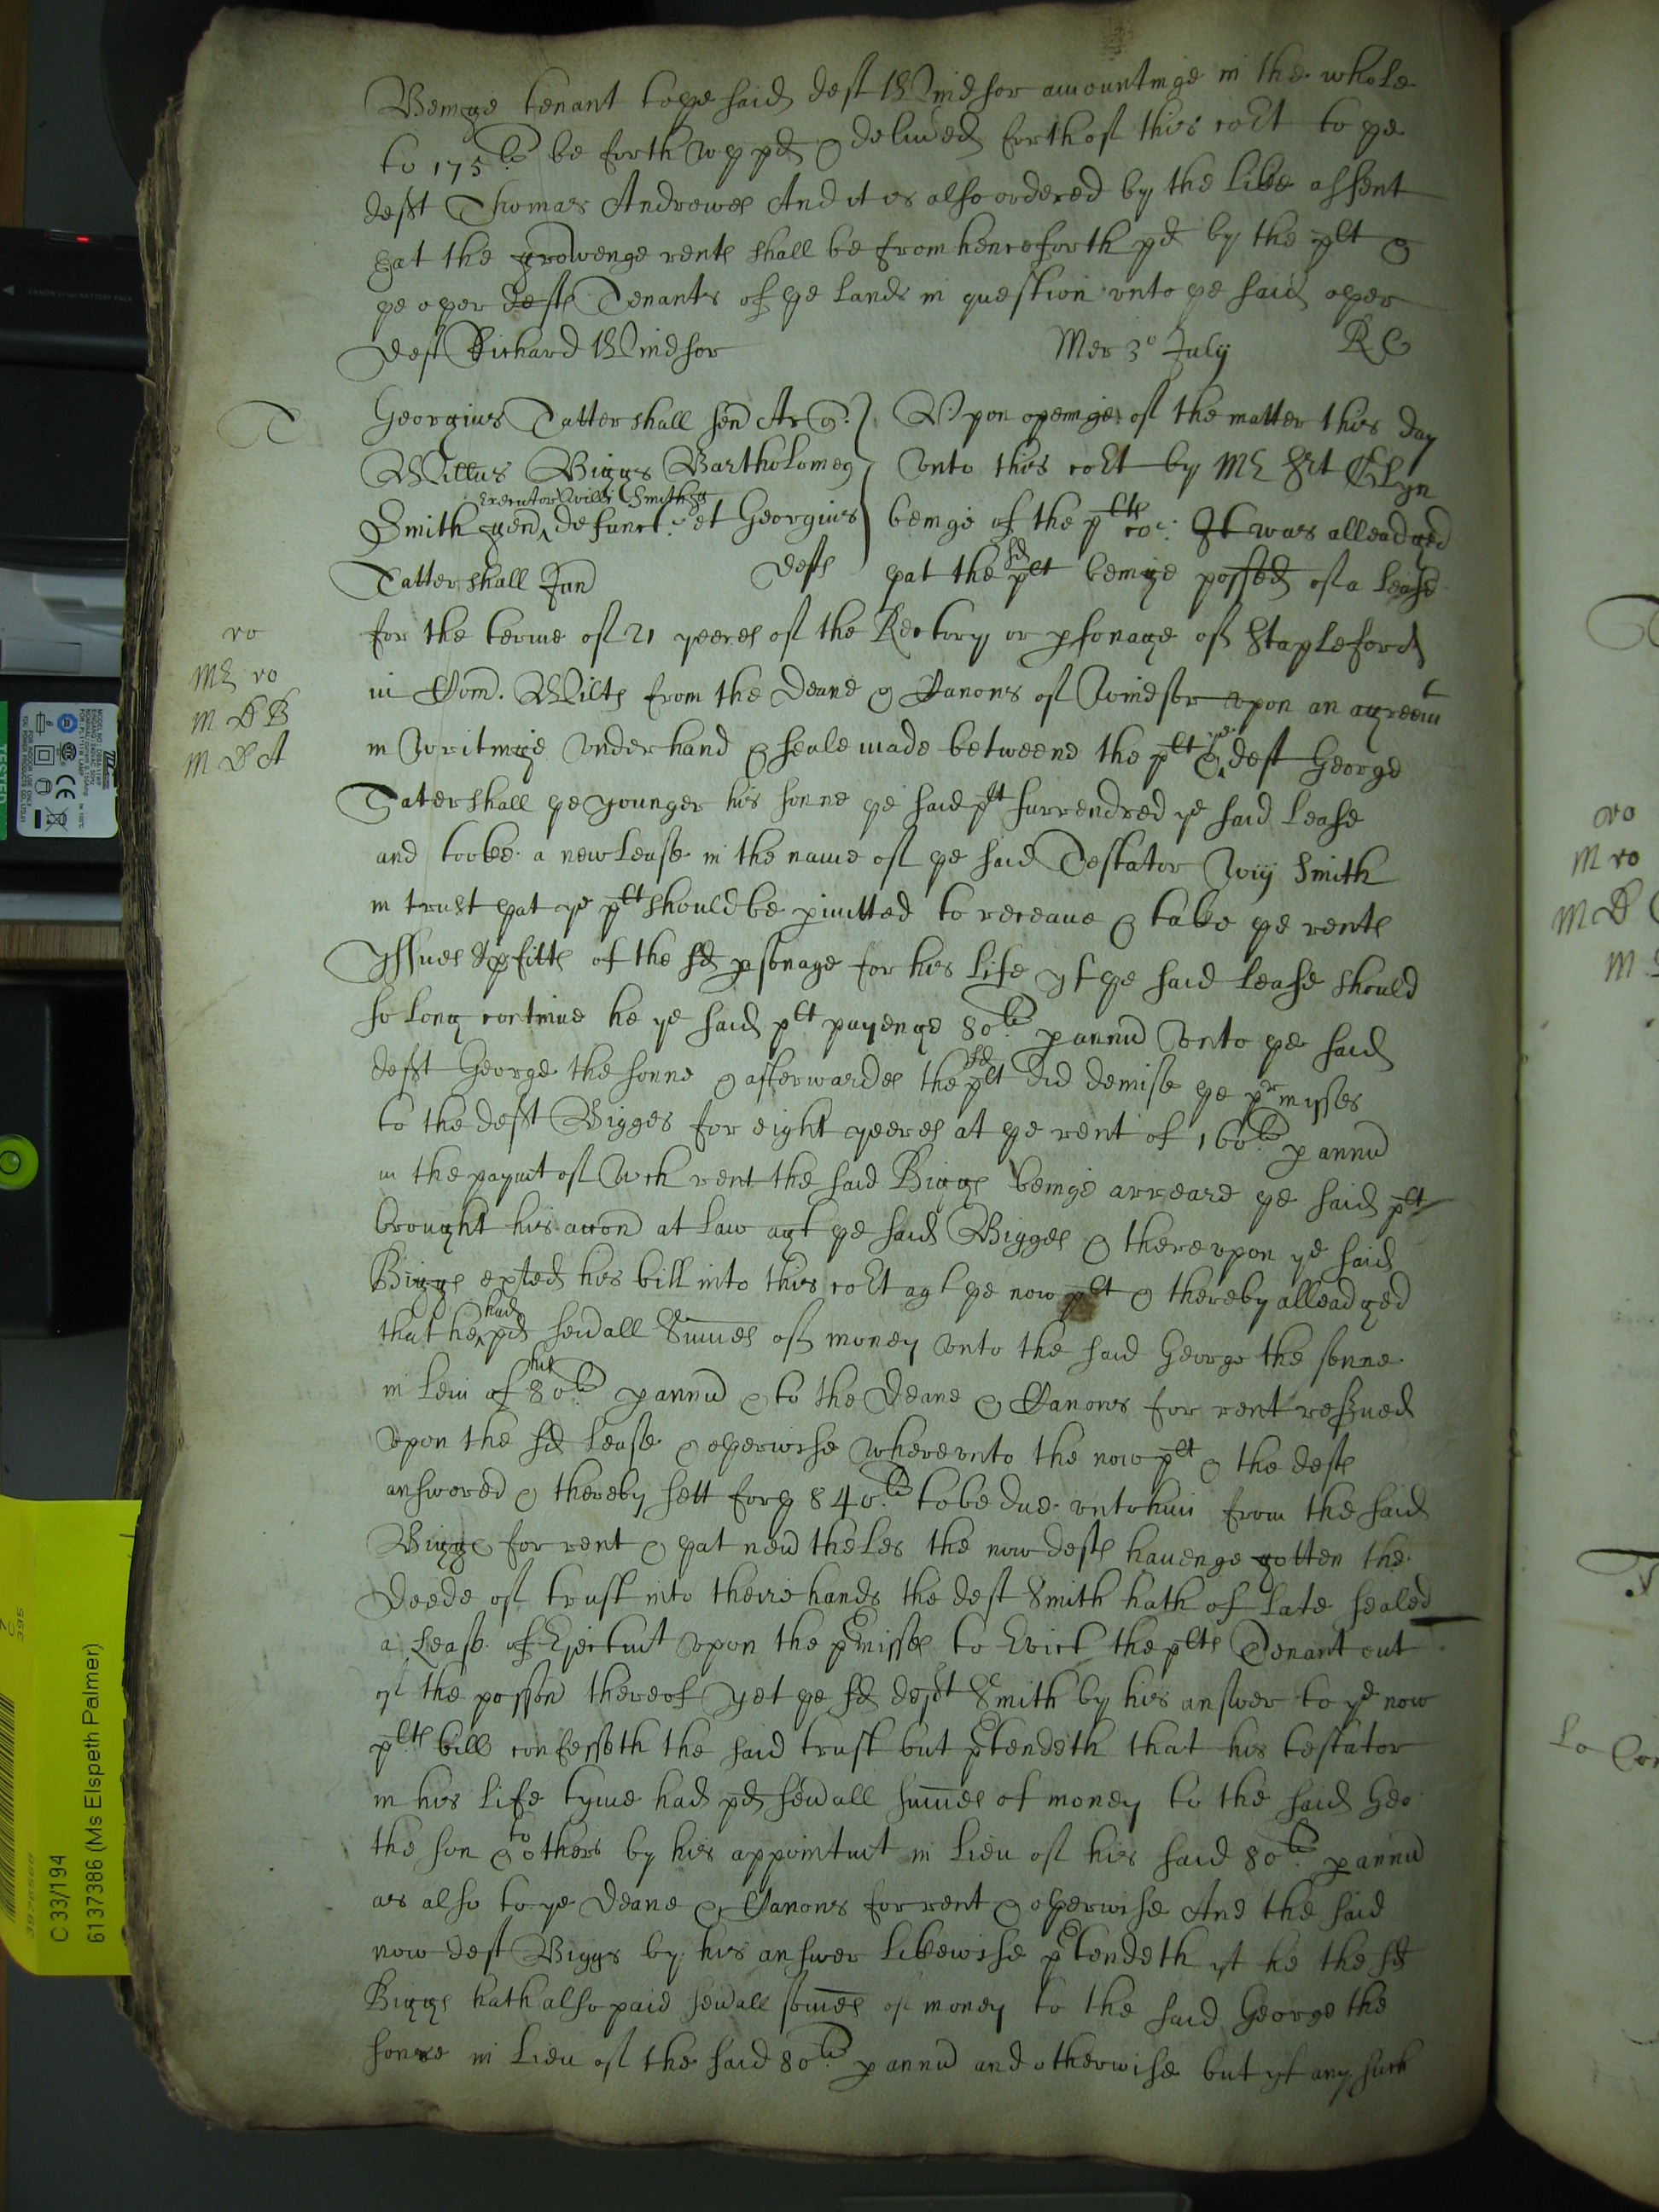 Beinge tenant to ye said deft Windsor amountinge in the whole
to 175li be forthwth pd & delived forth of this cort to ye
defft Thomas Andrewes And it is also ordered by the like assent
yat the growenge rents shall be from henceforth pd by the plt &
ye oyer defts Tenants of ye lands in question unto ye said oyer
deft Richard Windsor Mer 3o July RC
T
Georgius Tattershall sen Ar q:
Willus Biggs Bartholomeus
Executor Willi Smith
Smith gen defunct: et Georgius
Tattershall Jun defts
Upon openinge of the matter this day
unto this cort by Mr Srt
beinge of the plts co: It was alleadged
yat the sd plt beinge possed of a Lease
for the terme of 21 yeeres of the Rectory or psonage of Stapleford
in Com. Wilts from the Deane & Canons of Windsor upon an agreemt
in Writinge under hand & seale made betweene the plt & ye deft George
Tatershall ye younger his sonne ye said plt surrendred ye said Lease
and tooke a new Lease in the name of ye said Testator Wm Smith
in trust yat ye plt should be pmitted to receaue & take ye rents
yssues & pfitts of the sd psonage for his life yf ye said lease should
so long continue he ye said plt payenge 80li p annu unto ye said
defft George the sonne & afterwardes the sd plt did demise ye prmysses
to the defft Bigges for eight yeeres at ye rent of 160li p annu
in the paymt of Wch rent the said Biggs beinge arreare ye said plt
brought his accon at law agt ye said Bigges & thereupon ye said
Biggs exted his bill into this cort agt ye now plt & thereby alleadged
that he had pd seuall Summes of money unto the said George the sonne
in leiu of his 80li p annu & to the Deane & Canons for rent resued
upon the sd lease & oyerwise whereunto the now plt & the defts
answered & thereby sett fory 840li to be due unto him from the said
Biggs for rent & yat neutheles the now defts hauenge gotten the
Deede of trust into theire hands the deft Smith hath of late sealed
a lease of Ejectmt upon the pmisses to Evict the plts Tenant out
of the posson thereof yet ye sd defft Smith by his answer to ye now
plts bill confesseth the said trust but ptendeth that his testator
in his life tyme had pd seuall summes of money to the said Geo
the son & to others by his appointmt in lieu of his said 80li p annu
as also to ye Deane & Canons for rent & oyerwise And the said
now deft Biggs by his answer likewise ptendeth yt he the sd
Biggs hath also paid seuall somes of money to the said George the
sonne in lieu of the said 80li p annu and otherwise but yf any such
ro
Mr ro
M D B
M D A
ro
M ro
M D
M
Lo Cor
C 33/194
6137386 (Ms Elspeth Palmer)
TESTED